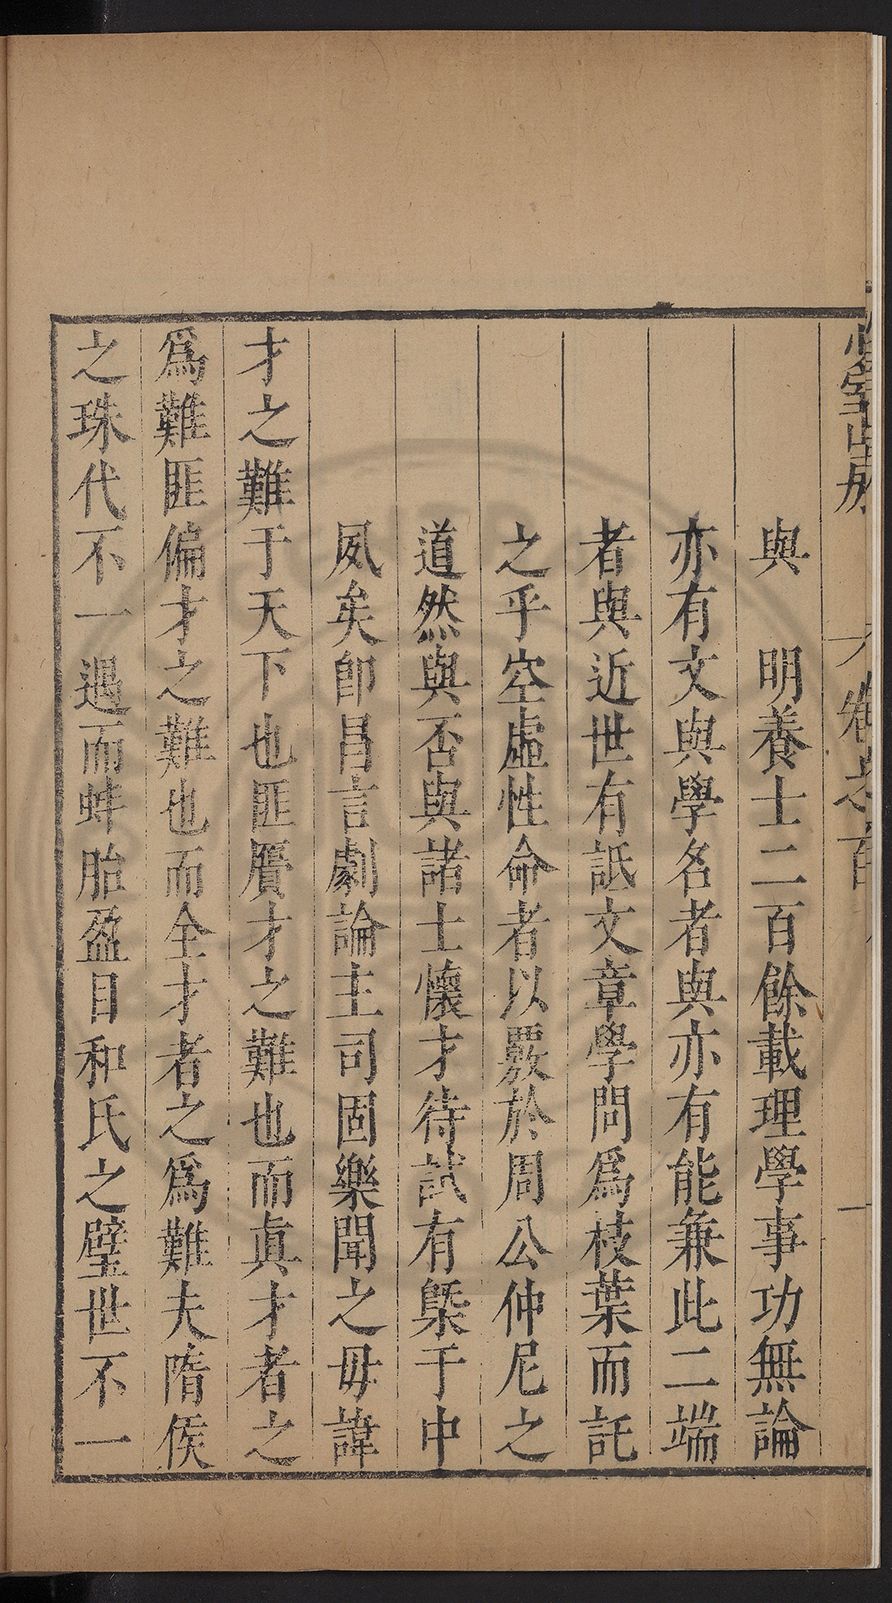 卷之百
一
與　明養士二百餘載理學事功無論
亦有文與學名者與亦有能兼此二端
者與近世有詆文章學問爲枝葉而託
之乎空虛性命者以覈於周公仲尼之
道然與否與諸士懷才待試有槩于中
夙矣卽昌言劇論主司固樂聞之毋諱
才之難于天下也匪贗才之難也而眞才者之
爲難匪偏才之難也而全才者之爲難夫隋侯
之珠代不一遇而蚌胎盈目和氏之璧世不一